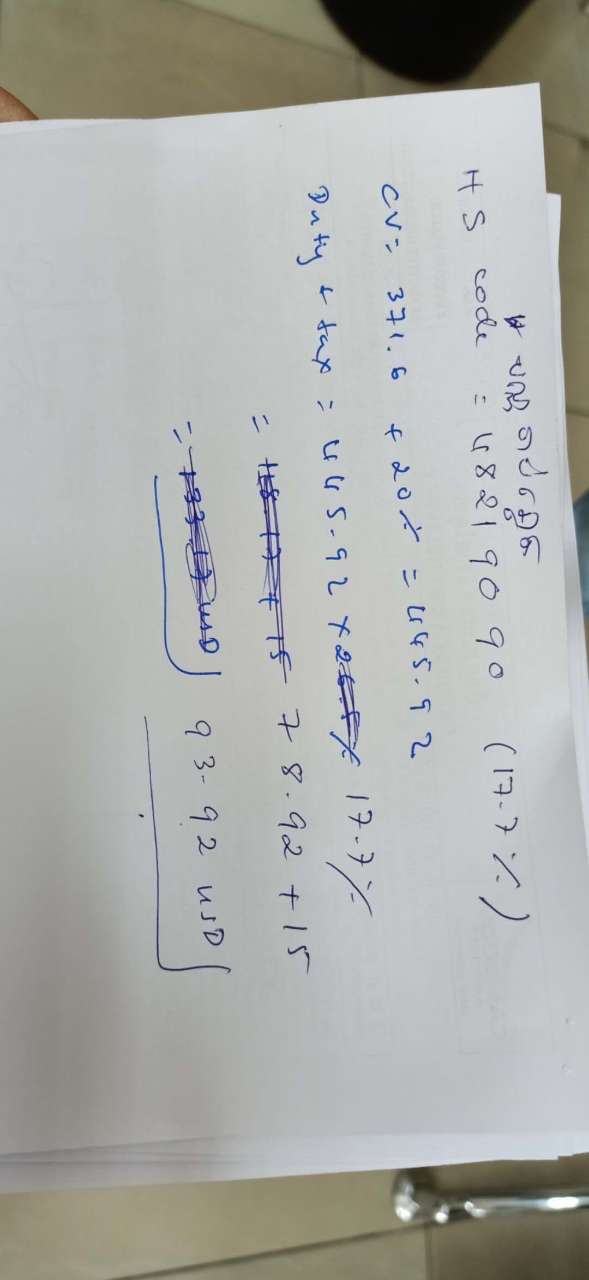 HS code = 48219090 (17.7%)
CV = 371.6 + 20% = 445.92
Duty + tax = 445.92 x 17.7%
= 78.92 + 15
= 93.92 USD